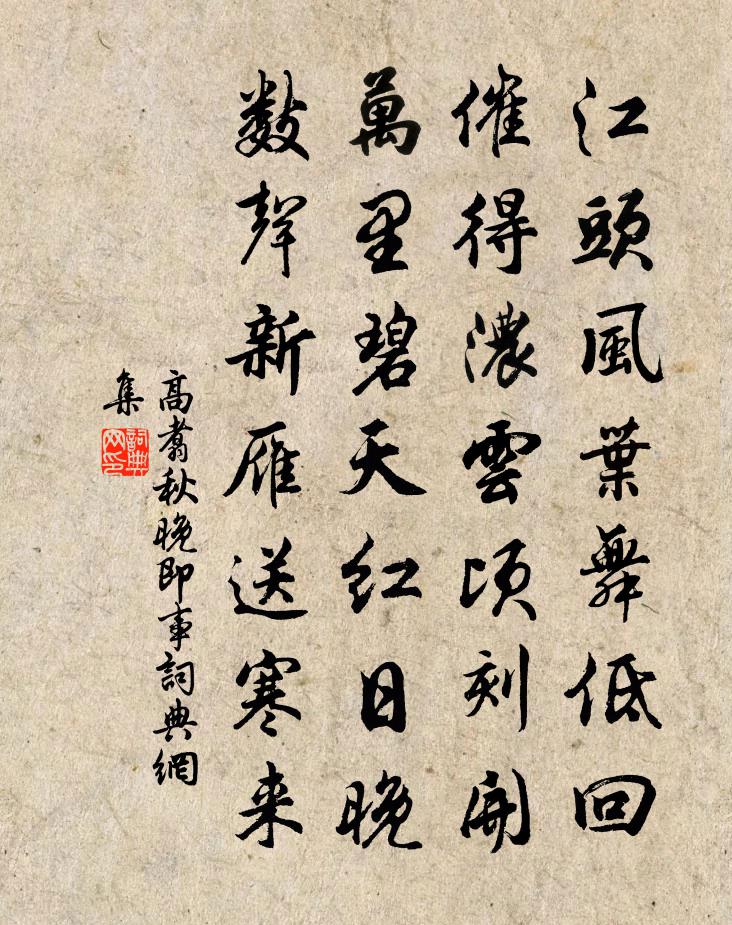 江頭風葉舞低回
催得濃雲頃刻開
萬里碧天紅日晚
數聲新雁送寒来
高翥秋晚即事詞典網
集
詞典
网印